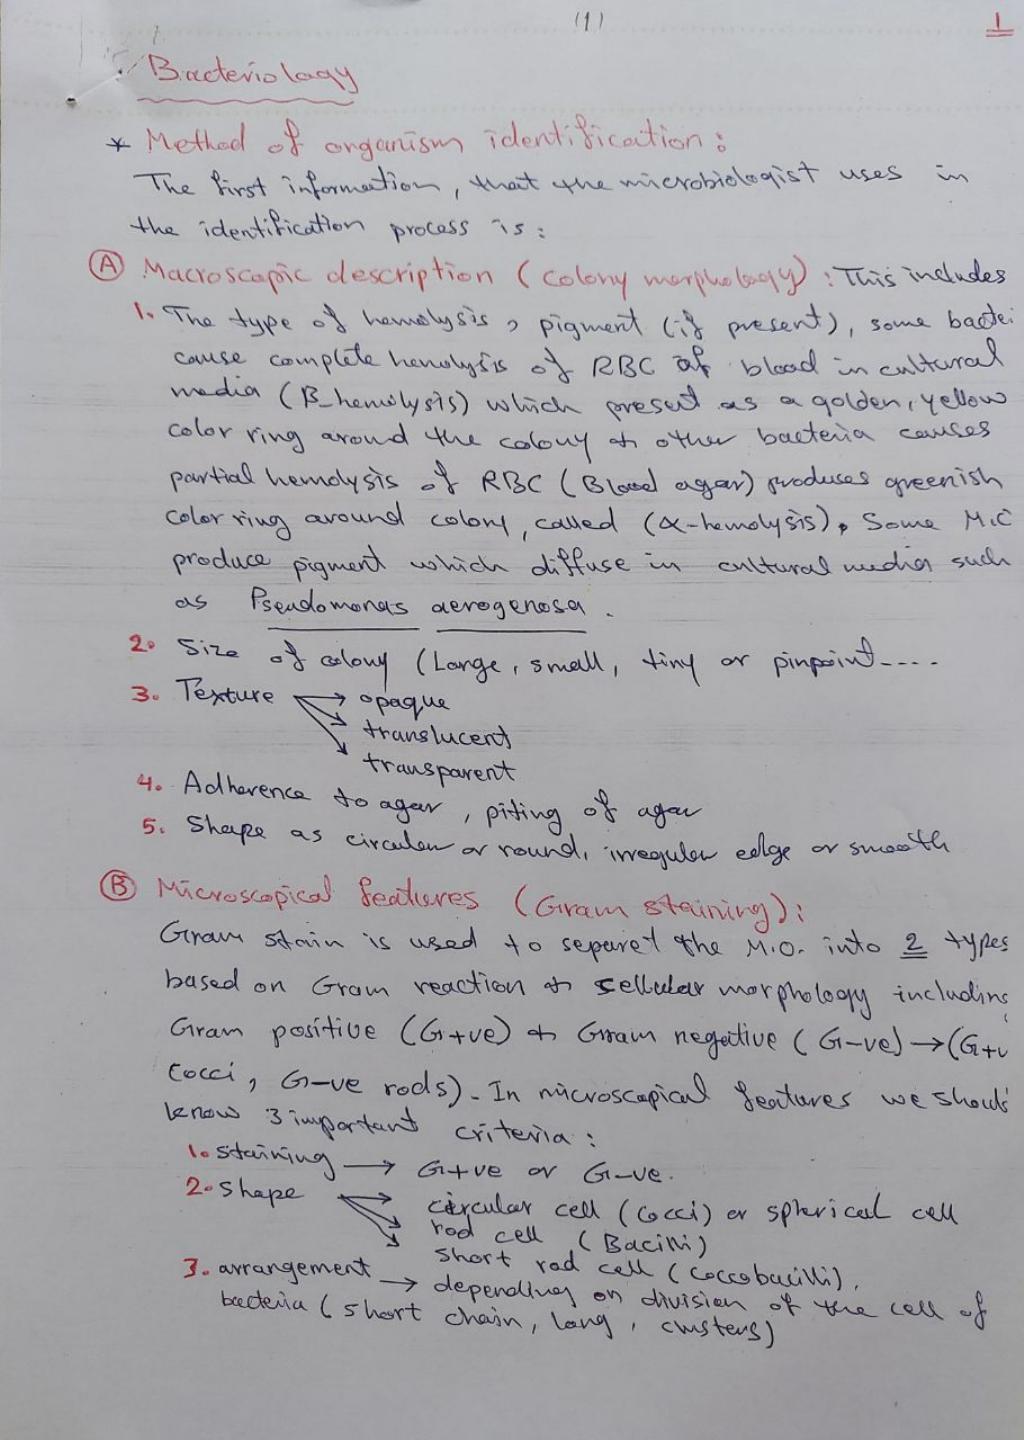 (1)
1
Bacteriology
* Method of organism identification:
The first information, that the microbiologist uses in
the identification process is:
(A) Macroscopic description (colony morphology): This includes
1. The type of hemolysis, pigment (if present), some bactei
cause complete hemolysis of RBC of blood in cultural
media (B_hemolysis) which present as a golden, yellow
color ring around the colony & other bacteria causes
partial hemolysis of RBC (Blood agar) produces greenish
color ring around colony, called (α-hemolysis). Some M.C
produce pigment which diffuse in cultural media such
as Pseudomonas aerogenosa.
2. Size of colony (Large, small, tiny or pinpoint....
3. Texture → opaque
translucent
transparent
4. Adherence to agar, piting of agar
5. Shape as circular or round, irregular edge or smooth
(B) Microscopical features (Gram staining):
Gram stain is used to separet the M.O. into 2 types
based on Gram reaction & sellular morphology including
Gram positive (G+ve) & Gram negative (G-ve) → (G+v
cocci, G-ve rods). In microscopical features we should
know 3 important criteria:
1. staining → G+ve or G-ve.
2. shape → circular cell (cocci) or spherical cell
rod cell (Bacilli)
short rod cell (coccobacilli).
3. arrangement → depending on division of the cell of
bacteria (short chain, long, clusters)